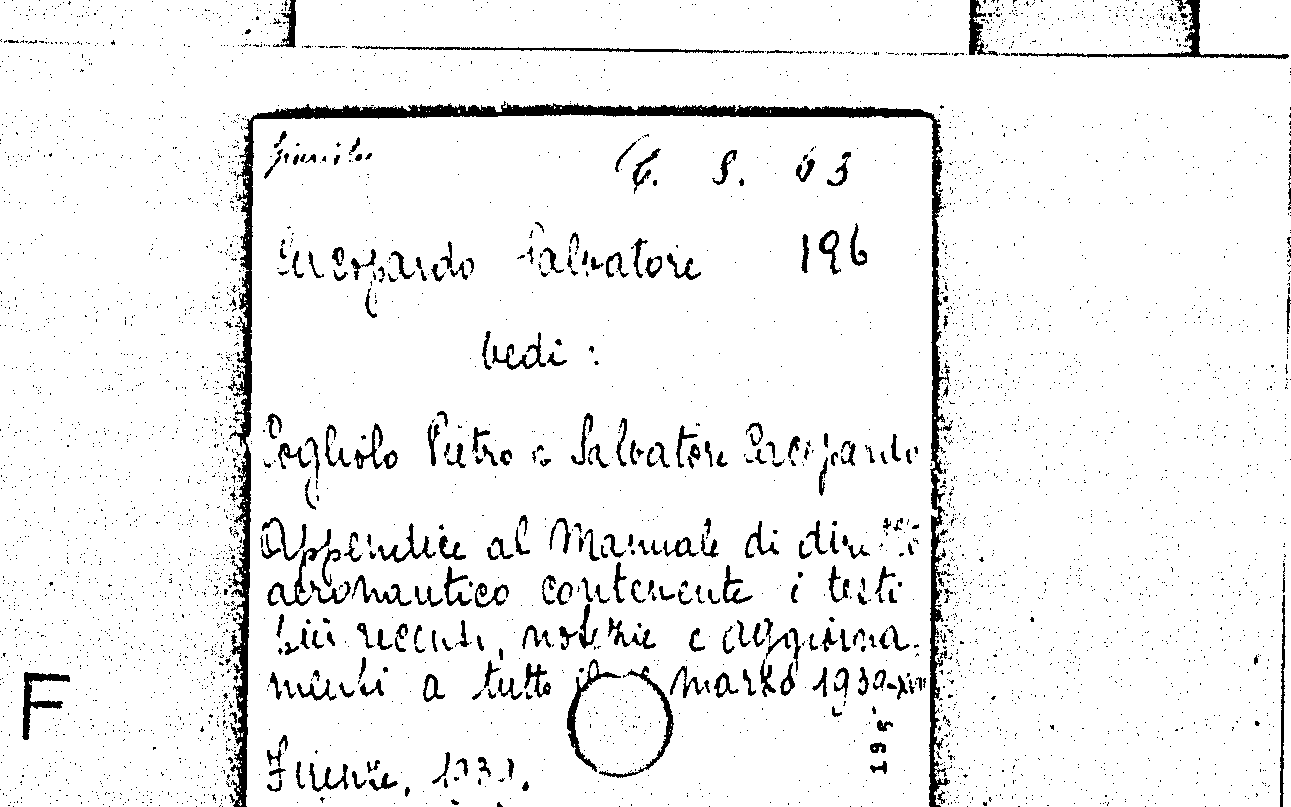 C. S. 63
Cacopardo Salvatore 196
vedi :
Cogliolo Pietro e Salvatore Cacopardo
Appendice al Manuale di diritto
aeronautico contenente i testi
più recenti, notizie e aggiorna
menti a tutto il marzo 1939-XVII
F
Firenze, 1939.
195